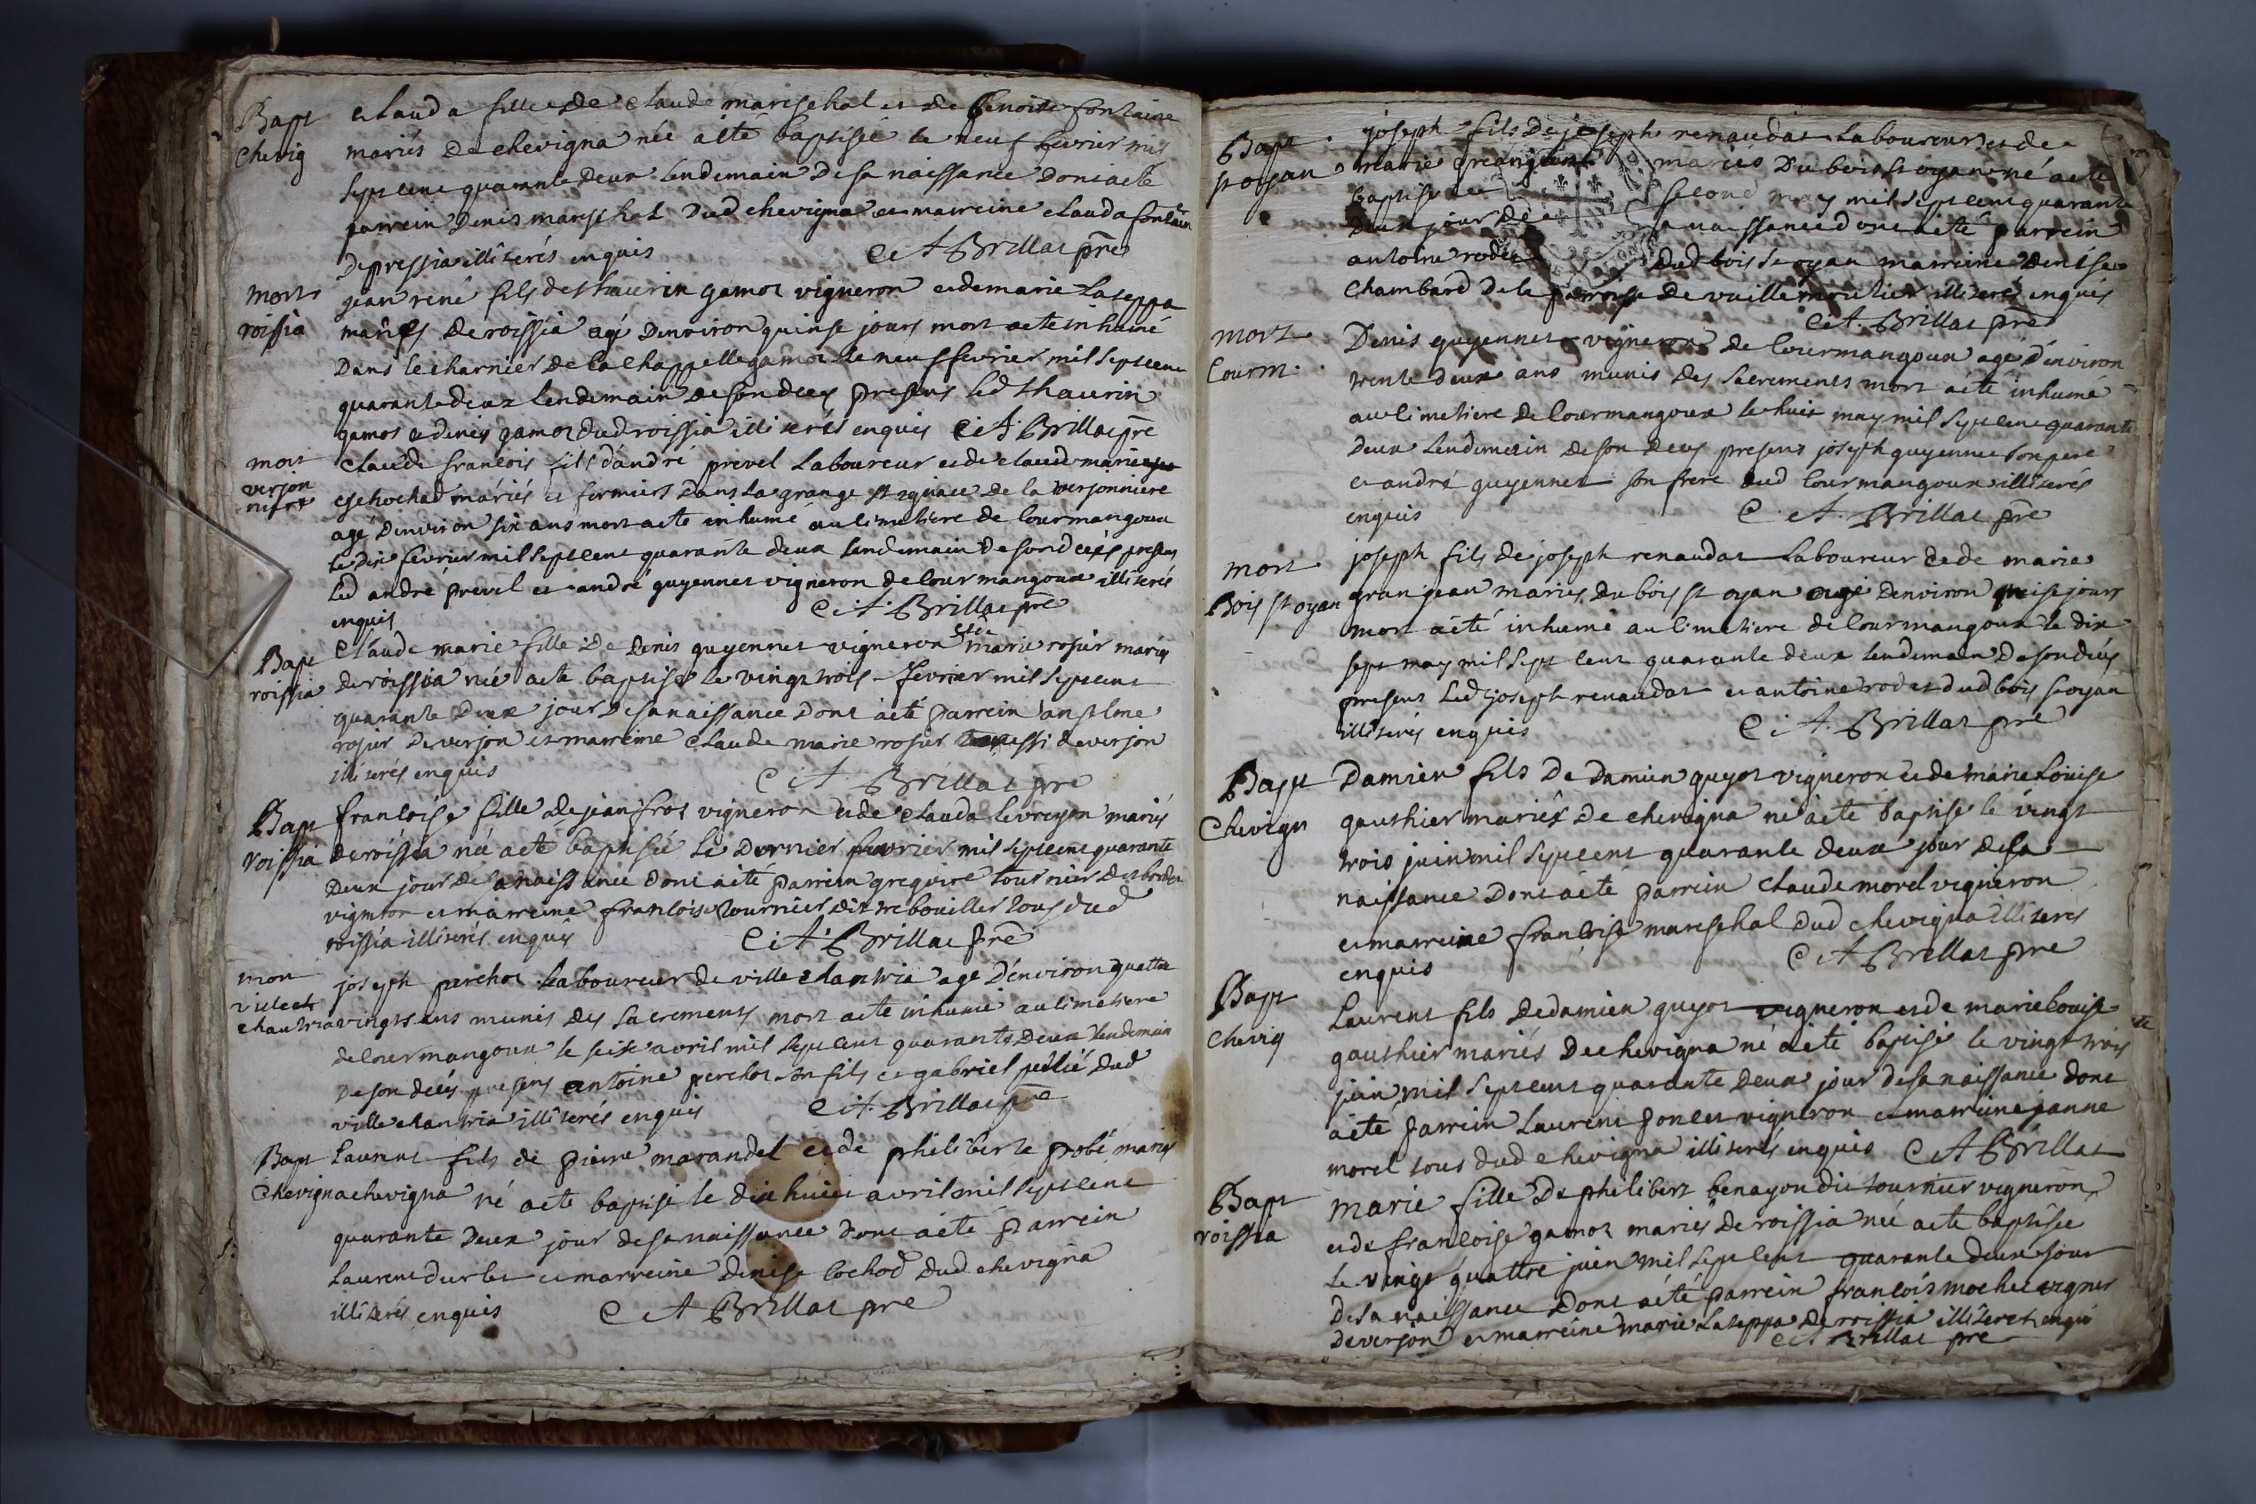 Bapt
Chevig
Clauda fille De Claude mareschal et de Benoite fontaine
mariés De chevigna née a été baptisée le neuf fevrier mil
sept cent quarante Deux lendemain De sa naissance Dont a été
parrein Denis mareschal Dud chevigna et marreine Clauda fontaine
De pressia illiterés enquis C A Brillat pre
mort
roissia
jean rené fils de thaurin gamot vigneron et de marie Laseppa
mariés De roissia agé D'environ quinse jours mort a ete inhumé
Dans le charnier de la chappelle gamot le neuf fevrier mil sept cent
quarante deux lendemain de son deces presens led thaurin
gamot et denis gamot dud roissia illiterés enquis C A Brillat pre
mort
verjon
niere
Claude francois fils d'andré prevel Laboureur et de claud marie
Cochod mariés et fermiers Dans la grange st ignace de la verjonniere
agé D'environ six ans mort a ete inhumé au cimetiere de Courmangoux
le Dix fevrier mil sept cent quarante deux lendemain De son décés presens
Led andré prevel et andré guyennet vigneron de Courmangoux illiterés
enquis C A Brillat pre
Bapt
roissia
Claude marie fille De Denis guyennet vigneron et de marie rosier mariés
de roissia née a ete baptisée le vingt trois fevrier mil sept cent
quarante Deux jour De sa naissance Dont a été parrein anselme
rosier De verjon et marreine Claude marie rosier aussi de verjon
illiterés enquis C A Brillat pre
Bapt
roissia
francoise fille de jean frot vigneron et de Clauda Levrayon mariés
de roissia née a eté baptisée le Dernier fevrier mil sept cent quarante
Deux jour de sa naissance dont a été parrein gregoire tournier
vigneron et marreine francoise tournier dit trebouillet tous dud
roissia illiterés enquis C A Brillat pre
mort
ville
chantria
joseph perchot Laboureur de ville chantria agé D'environ quattre
vingts ans munis des sacrements mort a ete inhumé au cimetiere
de Courmangoux le seise avril mil sept cent quarante Deux lendemain
De son décés presens antoine perchot son fils et gabriel pelié Dud
ville chantria illiterés enquis C A Brillat pre
Bapt
Chevigna
Laurent fils de pierre marandel et de philiberte probé mariés
chevigna né a eté baptisé le dix huit avril mil sept cent
quarante Deux jour de sa naissance Dont a été parrein
Laurent durlet et marreine Denise Cochod Dud chevigna
illiterés enquis C A Brillat pre
Bapt
st oyan
joseph fils De joseph renaudat Laboureur et de
marie mariés Du bois st oyan né a eté
baptisé second may mil sept cent quarante
Deux jour De sa naissance dont a été parrein
antoine rodet Dud bois st oyan marreine Denise
Chambard De la parroisse De vaillemoutier illiterés enquis
C A Brillat pre
mort
Courm
Denis guyennet vigneron de Courmangoux agé d'environ
trente deux ans munis Des sacrements mort a été inhumé
au Cimetiere de Courmangoux le huit may mil sept cent quarante
Deux lendemain de son deces presens joseph guyennet son pere
et andré guyennet son frere dud Courmangoux illiterés
enquis C A Brillat pre
mort
Bois st oyan
joseph fils de joseph renaudat Laboureur et de marie
granjean mariés Du bois st oyan agé d'environ quinse jours
mort a été inhumé au cimetiere de Courmangoux le dix
sept may mil sept cent quarante deux lendemain De son decés
presens Led joseph renaudat et antoine rodet dud bois st oyan
illiterés enquis C A Brillat pre
Bapt
Chevign
Damien fils De Damien guyot vigneron et de marie Louise
gauthier mariés De chevigna né a été baptisé le vingt
trois juin mil sept cent quarante deux jour de sa
naissance Dont a été parrein Claude morel vigneron
et marreine francoise mareschal dud chevigna illiterés
enquis C A Brillat pre
Bapt
Chevig
Laurent fils De damien guyot vigneron et de marie Louise
gauthier mariés De chevigna né a été baptisé le vingt trois
juin mil sept cent quarante Deux jour de sa naissance dont
a été parrein Laurent poncet vigneron et marreine janne
morel tous dud chevigna illiterés enquis C A Brillat
Bapt
roissia
Marie fille De philibert benayon dit tournier vigneron
et de francoise gamot mariés De roissia née a eté baptisée
le vingt quattre juin mil sept cent quarante deux jour
De sa naissance Dont a été parrein francois mochet vigner
De verjon et marreine marie Laseppa de roissia illiterés enquis
C A Brillat pre